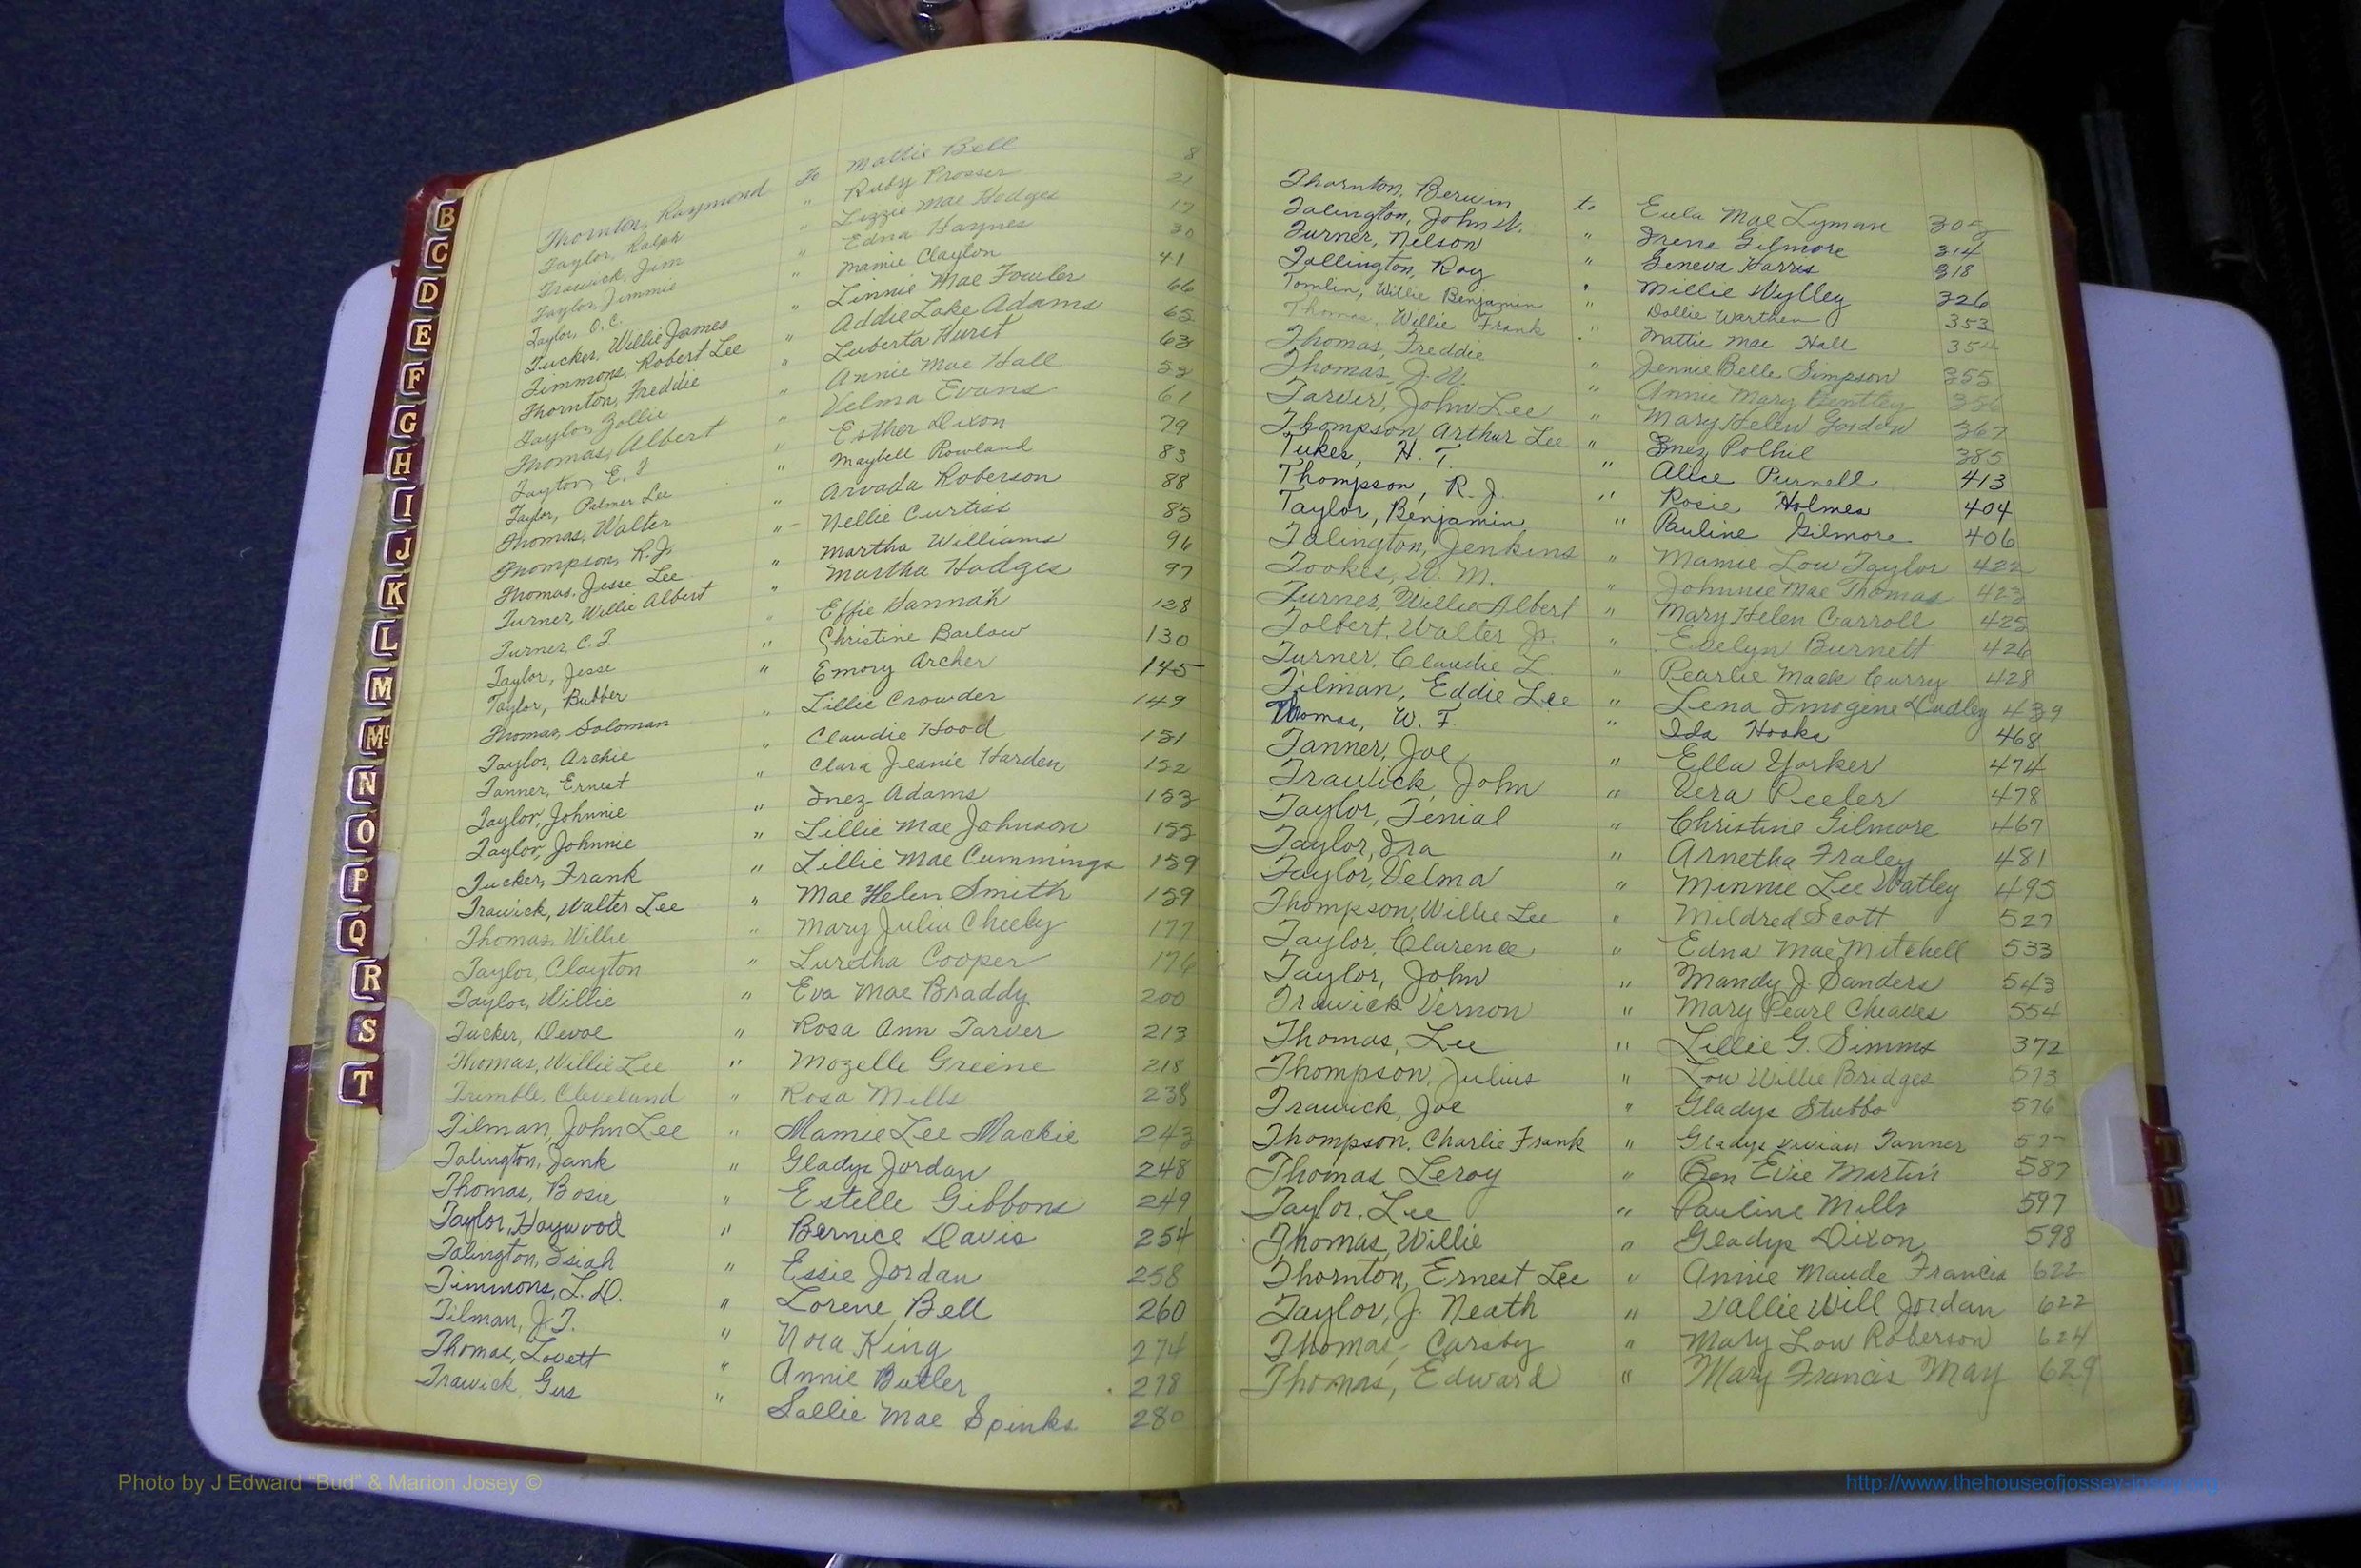 B
C
D
E
F
G
H
I
J
K
L
M
Mc
N
O
P
Q
R
S
T
Thornton, Raymond To Mattie Bell 8
Taylor, Ralph " Ruby Prosser 21
Trawick, Jim " Lizzie Mae Hodges 17
Taylor, Jimmie " Edna Haynes 30
Taylor, O.C. " Mamie Clayton 41
Tucker, Willie James " Linnie Mae Fowler 66
Timmons, Robert Lee " Addie Lake Adams 65
Thornton, Freddie " Luberta Hurst 63
Taylor, Zollie " Annie Mae Hall 52
Thomas, Albert " Velma Evans 61
Taylor, E. J " Esther Dixon 79
Taylor, Palmer Lee " Maybell Rowland 83
Thomas, Walter " Arvada Roberson 88
Thompson, R.J. " Nellie Curtiss 85
Thomas, Jesse Lee " Martha Williams 96
Turner, Willie Albert " Martha Hodges 97
Turner, C.T " Effie Hannah 128
Taylor, Jesse " Christine Barlow 130
Taylor, Bubber " Emory Archer 145
Thomas, Soloman " Lillie Crowder 149
Taylor, Archie " Claudie Hood 151
Tanner, Ernest " Clara Jeanie Harden 152
Taylor, Johnnie " Inez Adams 153
Taylor, Johnnie " Lillie Mae Johnson 155
Tucker, Frank " Lillie Mae Cummings 159
Trawick, Walter Lee " Mae Helen Smith 159
Thomas, Willie " Mary Julia Cheeby 177
Taylor, Clayton " Luretha Cooper 176
Taylor, Willie " Eva Mae Braddy 200
Tucker, Devoe " Rosa Ann Tarver 213
Thomas, Willie Lee " Mozelle Greene 218
Trimble, Cleveland " Rosa Mills 238
Tilman, John Lee " Mamie Lee Mackie 243
Talington, Jank " Gladys Jordan 248
Thomas, Bosie " Estelle Gibbons 249
Taylor, Haywood " Bernice Davis 254
Talington, Isiah " Essie Jordan 258
Timmons, L.D. " Lorene Bell 260
Tilman, J.T. " Nora King 274
Thomas, Lovett " Annie Butler 278
Trawick, Gus " Sallie Mae Spinks 280
Thornton, Berwin to Eula Mae Lyman 305
Talington, John W. " Irene Gilmore 314
Turner, Nelson " Geneva Harris 318
Tallington, Roy " Millie Wylley 326
Tomlin, Willie Benjamin " Dollie Warthen 353
Thomas, Willie Frank " Mattie Mae Hall 354
Thomas, Freddie " Jennie Belle Simpson 355
Thomas, J.W. " Annie Mary Bentley 356
Tarver, John Lee " Mary Helen Gordon 367
Thompson Arthur Lee " Inez Polhil 385
Tukes, H. T. " Alice Purnell 413
Thompson, R. J. " Rosie Holmes 404
Taylor, Benjamin " Pauline Gilmore 406
Talington, Jenkins " Mamie Lou Taylor 422
Tookes, W. M. " Johnnie Mae Thomas 423
Turner, Willie Albert " Mary Helen Carroll 425
Tolbert, Walter Jr. " Evelyn Burnett 426
Turner, Claudie L. " Pearlie Mack Curry 428
Tilman, Eddie Lee " Lena Imogene Dudley 439
Thomas, W. F. " Ida Hooks 468
Tanner, Joe " Ella Yorker 474
Trawick, John " Vera Peeler 478
Taylor, Tenial " Christine Gilmore 467
Taylor, Ira " Arnetha Fraley 481
Taylor, Velma " Minnie Lee Watley 495
Thompson, Willie Lee " Mildred Scott 527
Taylor, Clarence " Edna Mae Mitchell 533
Taylor, John " Mandy J. Sanders 543
Trawick Vernon " Mary Pearl Cheaves 554
Thomas, Lee " Lillie G. Simms 372
Thompson, Julius " Lou Willie Bridges 573
Trawick, Joe " Gladys Stubbs 576
Thompson, Charlie Frank " Gladys Vivian Tanner
Thomas Leroy " Ben Evie Martin 587
Taylor, Lee " Pauline Mills 597
Thomas, Willie " Gladys Dixon 598
Thornton, Ernest Lee " Annie Maude Francis 622
Taylor, J. Neath " Vallie Will Jordan 622
Thomas, Carsby " Mary Lou Roberson 624
Thomas, Edward " Mary Francis May 629
Photo by J Edward "Bud" & Marion Josey ©
http://www.thehouseofjossey-josey.org